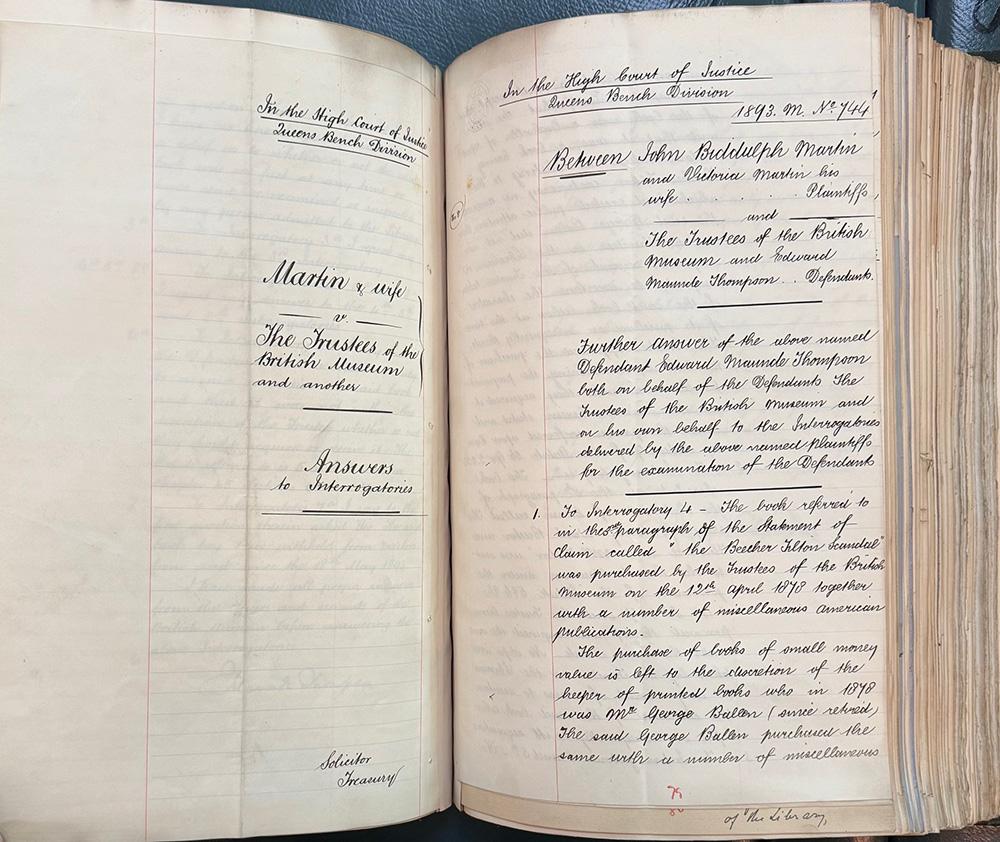 In the High Court of Justice
Queens Bench Division
Martin & wife
v.
The Trustees of the
British Museum
and another
Answers
to Interrogatories
Solicitor
Treasury
In the High Court of Justice
Queens Bench Division
1893. M. No. 744
Between John Biddulph Martin
and Victoria Martin his
wife . . . . Plaintiffs,
and
The Trustees of the British
Museum and Edward
Maunde Thompson . . Defendants.
Further Answer of the above named
Defendant Edward Maunde Thompson
both on behalf of the Defendants The
Trustees of the British Museum and
on his own behalf to the Interrogatories
delivered by the above named plaintiffs
for the examination of the Defendants
1. To Interrogatory 4 – The book referred to
in the 3rd paragraph of the Statment of
Claim called "the Beecher Tilton Scandal"
was purchased by the Trustees of the British
Museum on the 12th April 1878 together
with a number of miscellaneous American
publications.
The purchase of books of small money
value is left to the discretion of the
keeper of printed books who in 1878
was Mr George Bullen (since retired)
The said George Bullen purchased the
same with a number of miscellaneous
79
of "the Library,